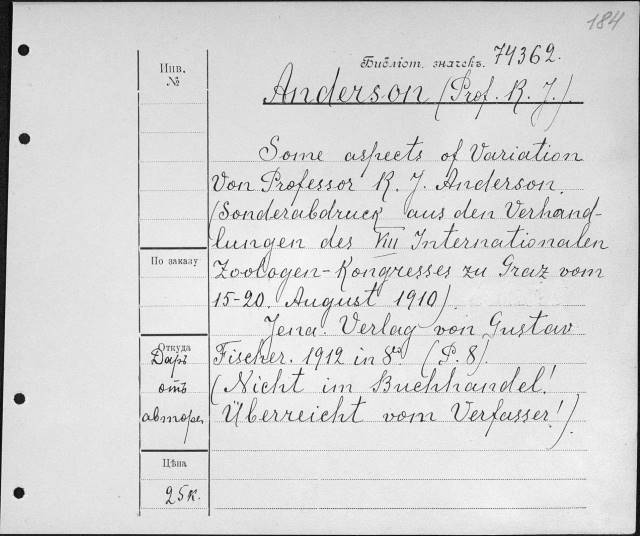 184
Библіот. значекъ. 74362.
Инв. №
Anderson (Prof. R. J.).
Some aspects of Variation
Von Professor R. J. Anderson.
(Sonderabdruck aus den Verhand-
lungen des VIII Internationalen
По заказу
Zoologen-Kongresses zu Graz vom
15-20. August 1910).
Jena. Verlag von Gustav
Откуда
Fischer. 1912 in 8º. (P. 8)
Даръ
отъ
(Nicht im Buchhandel!
автора
Überreicht vom Verfasser!).
Цѣна
25к.